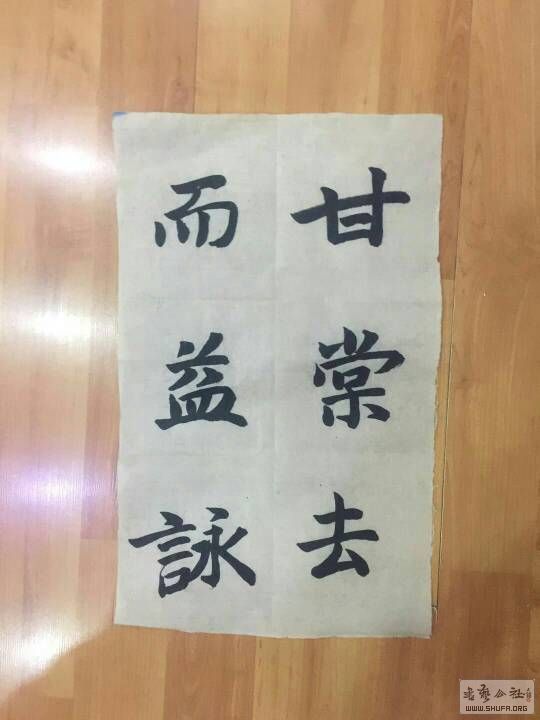 甘棠去
而益詠
WWW.SHUFA.ORG